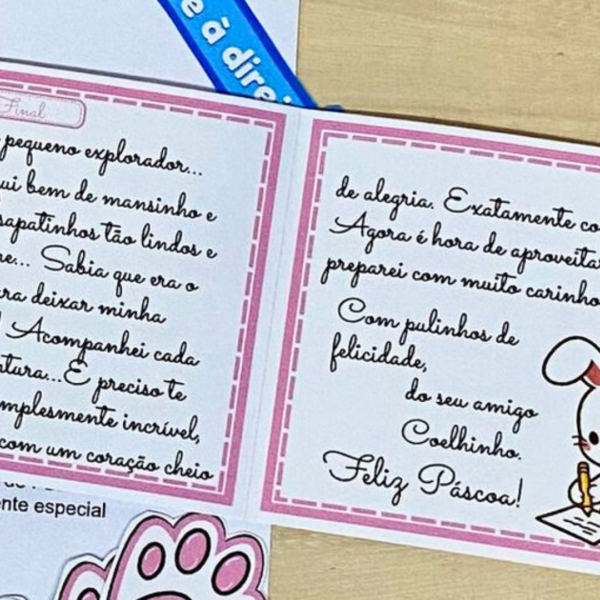 e à direi
Final
pequeno explorador...
ui bem de mansinho e
sapatinhos tão lindos e
e... Sabia que era o
ra deixar minha
! Acompanhei cada
ntura...E preciso te
mplesmente incrível,
com um coração cheio
de alegria. Exatamente co
Agora é hora de aproveita
preparei com muito carinho
Com pulinhos de
felicidade,
do seu amigo
Coelhinho.
Feliz Páscoa!
nte especial